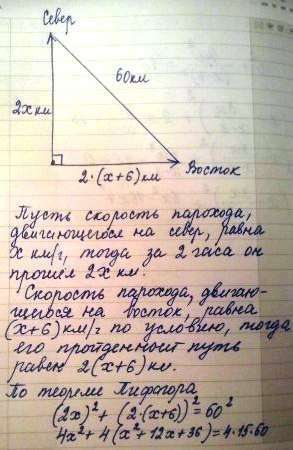 Север
60км
2х км
2·(х+6)км
Восток
Пусть скорость парохода,
двигающегося на север, равна
х км/ч, тогда за 2 часа он
прошел 2х км.
Скорость парохода, двигаю-
щегося на восток, равна
(х+6) км/ч по условию, тогда
его пройденный путь
равен 2(х+6) км.
По теореме Пифагора
(2х)² + (2·(х+6))² = 60²
4х² + 4(х² + 12х + 36) = 4·15·60